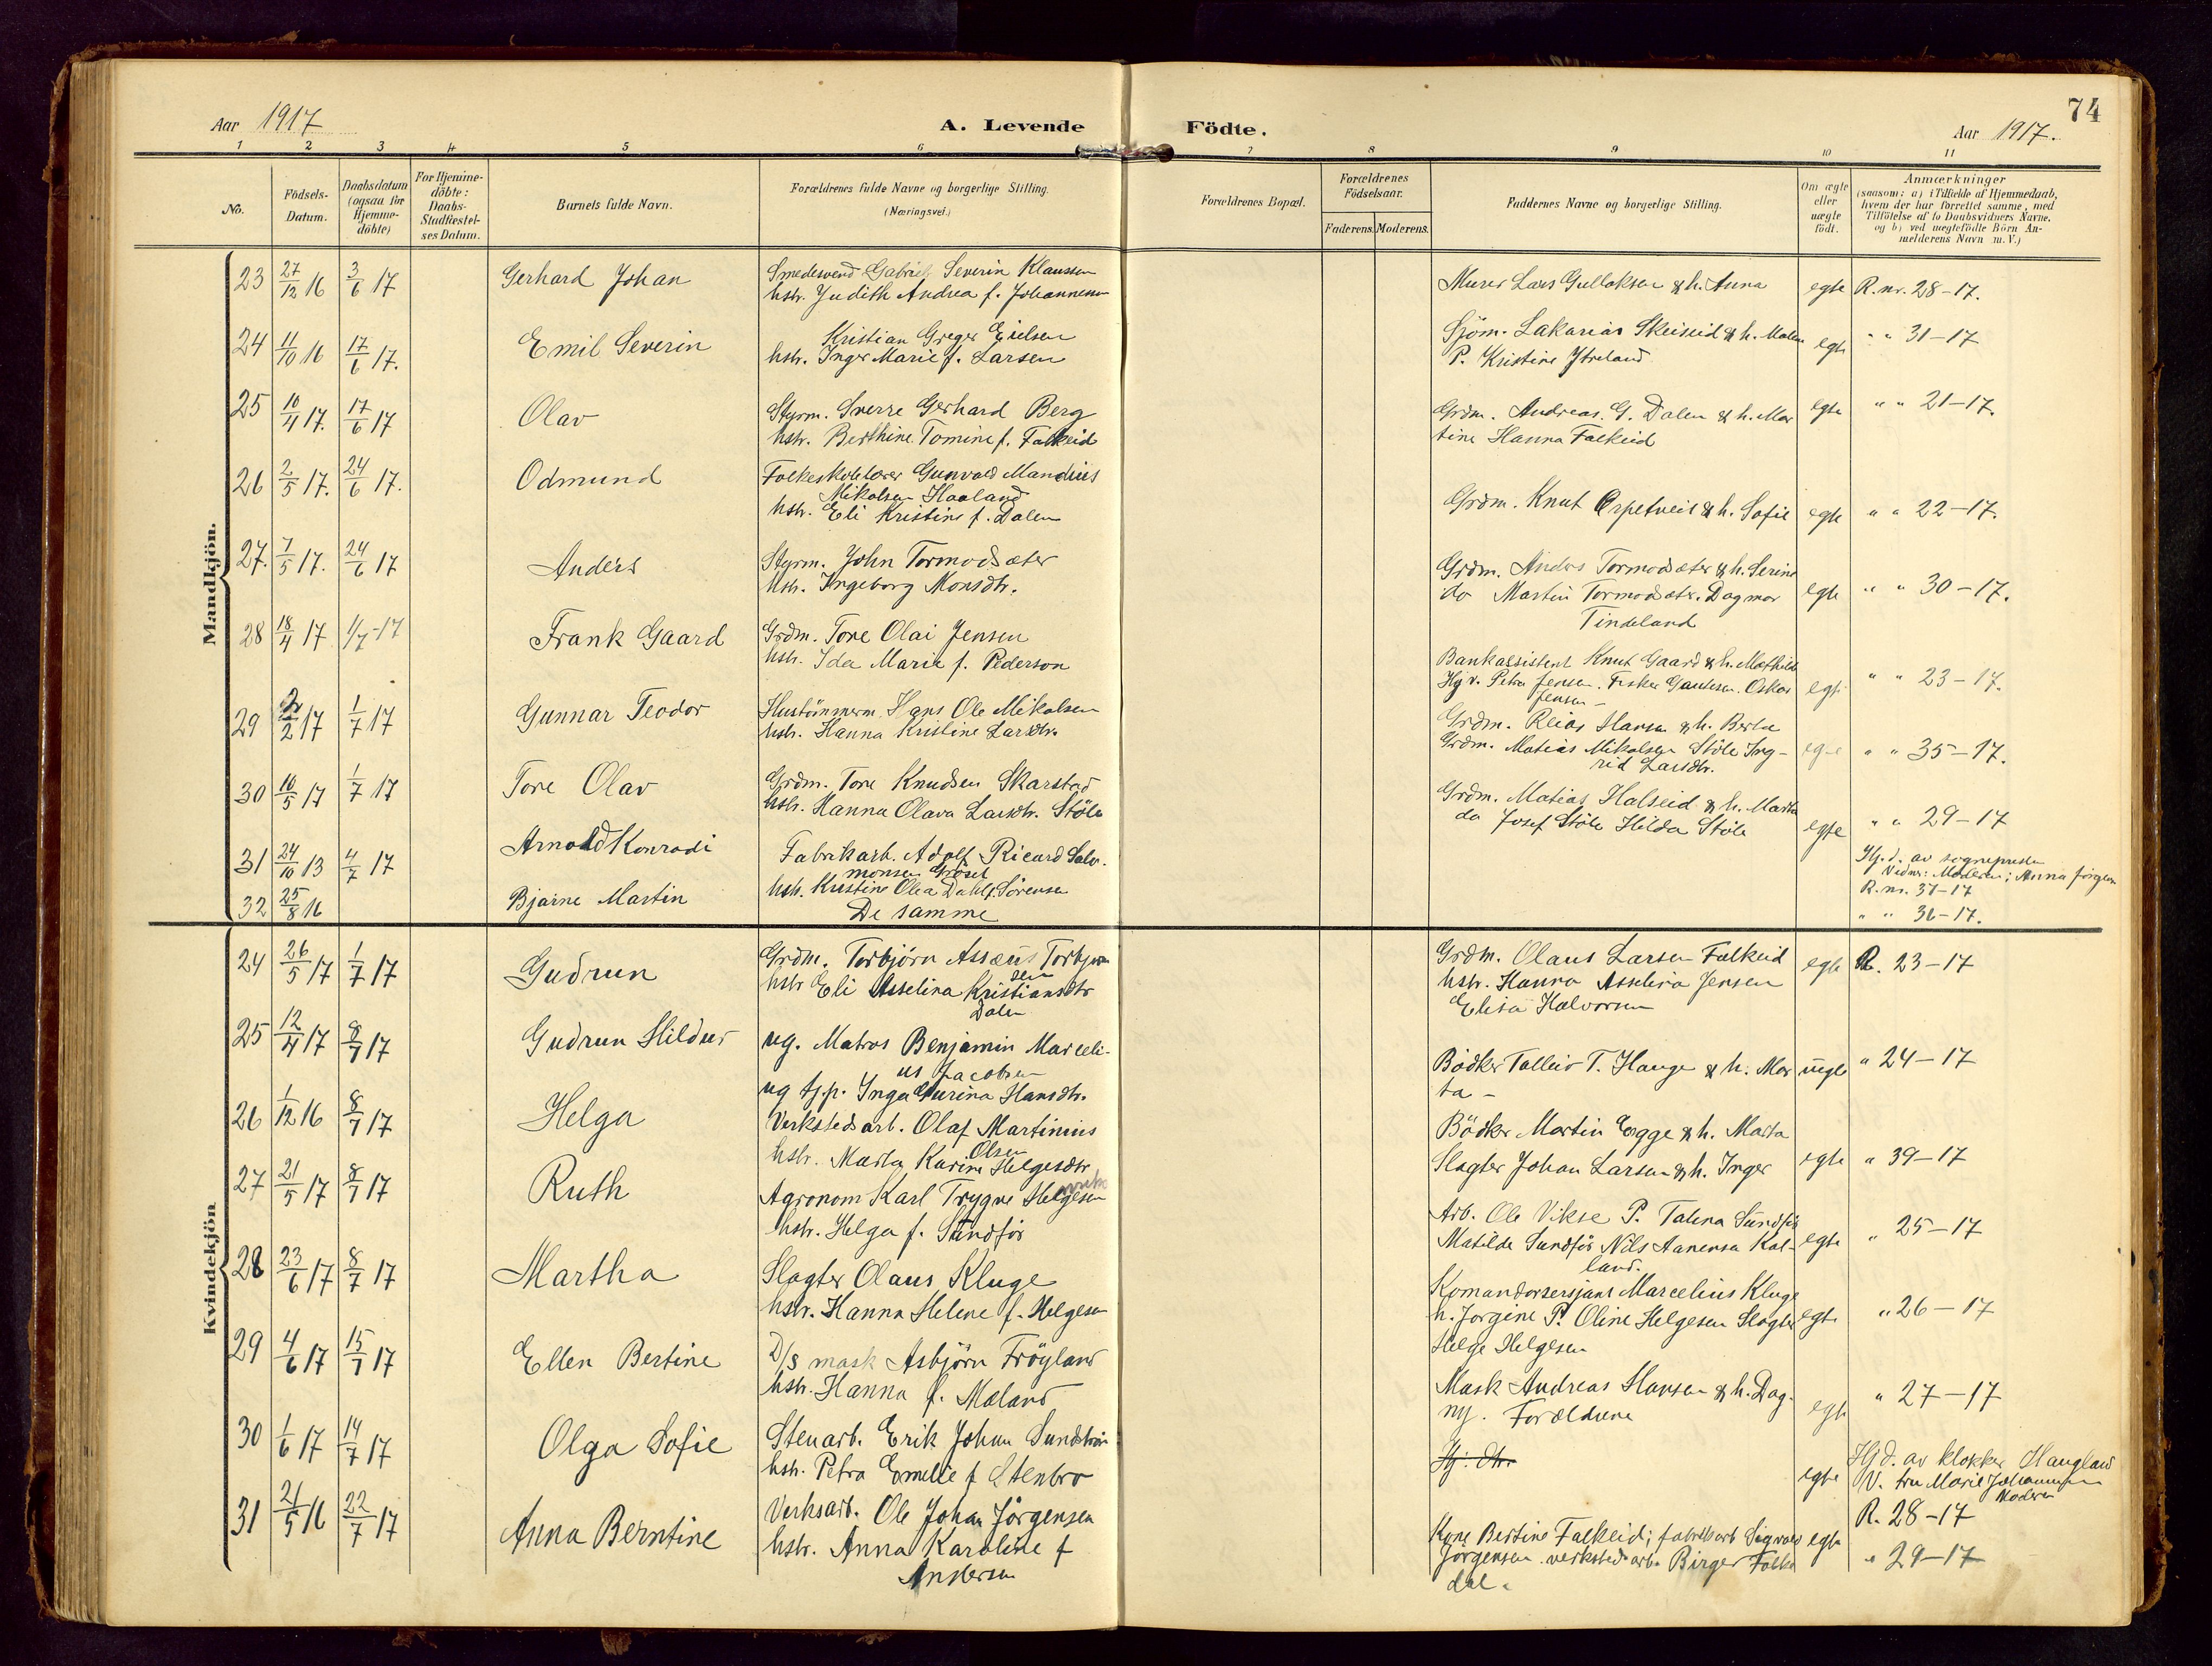 74
Aar 1917
A. Levende Födte.
Aar 1917.
1 2 3 4 5 6 7 8 9 10 11
No.
Födsels-Datum.
Daabsdatum (ogsaa for Hjemme-döbte)
For Hjemme-döbte: Daabs-Stadfæstel-ses Datum.
Barnets fulde Navn.
Forældrenes fulde Navne og borgerlige Stilling. (Næringsvei.)
Forældrenes Bopæl.
Forældrenes Födselsaar.
Faderens. Moderens.
Faddernes Navne og borgerlige Stilling.
Om ægte eller uægte födt.
Anmærkninger
(saasom: a) i Tilfælde af Hjemmedaab,
hvem der har forrettet samme, med
Tilföielse af to Daabsvidners Navne.
og b) ved uægtefödte Börn An-
melderens Navn m. V.)
Mandkjön.
23 27/12 16 3/6 17 Gerhard Johan Smedesvend Gabriel Severin Klaussen
hstr. Judith Andrea f. Johannesen
Murer Lars Gulloksen & h. Anna egte R. nr. 28-17.
24 11/10 16 17/6 17. Emil Severin Kristian Greger Eielsen
hstr. Inger Marie f. Larsen
Sjöm. Sakarias Skeiseid & h. Malen
P. Kristine Ytreland egte " " 31-17
25 10/4 17. 17/6 17 Olav Styrm. Sverre Gerhard Berg
hstr. Berthine Tomine f. Falkeid
Grdm. Andreas G. Dalen & h. Mar
tine Hanna Falkeid egte " " 21-17.
26 2/5 17. 24/6 17. Odmund Folkeskolelærer Gunvald Mandius
Mikalsen Haaland
hstr. Eli Kristine f. Dalen
Grdm. Knut Orpetveit & h. Sofie egte " " 22-17.
27. 7/5 17. 24/6 17 Anders Styrm. John Tormodsæter
hstr. Ingeborg Monsdtr.
Grdm. Anders Tormodsæter & h. Serine
do Martin Tormodsæter. Dagmar
Tindeland egte " " 30-17.
28 18/4 17 1/7-17 Frank Gaard Grdm. Tore Olai Jensen
hstr. Ida Marie f. Pederson
Bankassistent Knut Gaard & h. Mathilde
Hgv. Petra Jensen. Fisker Oskar
Jensen - egte " " 23-17.
29 2/2 17 1/7 17 Gunnar Teodor Hustömmerm. Hans Ole Mikalsen
hstr. Hanna Kristine Larsdtr.
Grdm. Hansen & h. Berta
Grdm. Matias Mikalsen Støle Ing-
rid Larsdtr. egte " " 35-17.
30 10/5 17 1/7 17 Tore Olav Grdm. Tore Knudsen Skarstad
hstr. Hanna Olava Larsdtr. Stöle
Grdm. Matias Halseid & h. Marta
do Josef Stöle Hilda Stöle egte " " 29-17
31 24/10 13 4/7 17 Arnold Konradi Fabrikarb. Adolf Ricard Salo-
monsen Gröset
hstr. Kristine Olea Dahl f. Sörensen
Hj.d. av sognepresten
Vidner: Moderen; Anna Jörgen
R. nr. 37-17
32 25/8 16 Bjarne Martin De samme " " 36-17.
Kvindekjön
24 26/5 17 1/7 17 Gudrun Grdm. Torbjörn Assæus Torbjörn
sen
hstr. Eli Asselina Kristiansdtr
Dalen
Grdm. Olaus Larsen Falkeid
hstr. Hanna Asselina Jensen
Elisa Halvorsen egte R. 23-17
25 12/4 17 8/7 17 Gudrun Hildur ug. Matros Benjamin Marceli-
us Jacobsen
ug tj.p. Inga Hansdtr.
Bödker Talleiv T. Hauge & h. Mar
ta - uegte " 24-17
26 1/12 16 8/7 17 Helga Verkstedsarb. Olaf Martinius
Olsen
hstr. Marta Karine Helgesdtr
Bödker Martin Egge & h. Marta
Slagter Johan Larsen & h. Inger egte " 39-17
27 21/5 17 8/7 17 Ruth Agronom Karl Trygve Helgesen
hstr. Helga f. Sundför
Arb. Ole Vikse P. Talena Sundför
Matilde Sundför Nils Aanensa Kal-
land. egte " 25-17
28 23/6 17 8/7 17 Martha Slagter Olaus Kluge
hstr. Hanna Helene f. Helgesen
Komandørsersjant Marcelius Kluge
h. Jorgine P. Oline Helgesen Slagter
Helge Helgesen egte " 26-17
29 4/6 17 15/7 17 Ellen Bertine D/S mask Asbjörn Fröyland
hstr. Hanna f. Maland
Mask Andreas Hansen & h. Dag-
ny. Forældrene egte " 27-17
30 1/6 17 14/7 17 Olga Sofie Stenarb. Erik Johan Sundström
hstr. Petra Emelie f Stenbro
egte Hjd. av klokker Haugland
V. fru Marie Johannesen
Moderen
R. 28-17
31 21/5 16 22/7 17 Anna Berntine Verksarb. Ole Johan Jörgensen
hstr. Anna Karoline f
Andersen
Kone Bertine Falkeid; fabrikarb Sigvald
Jörgensen. verkstedsarb. Birger Falke
dal. egte " 29-17